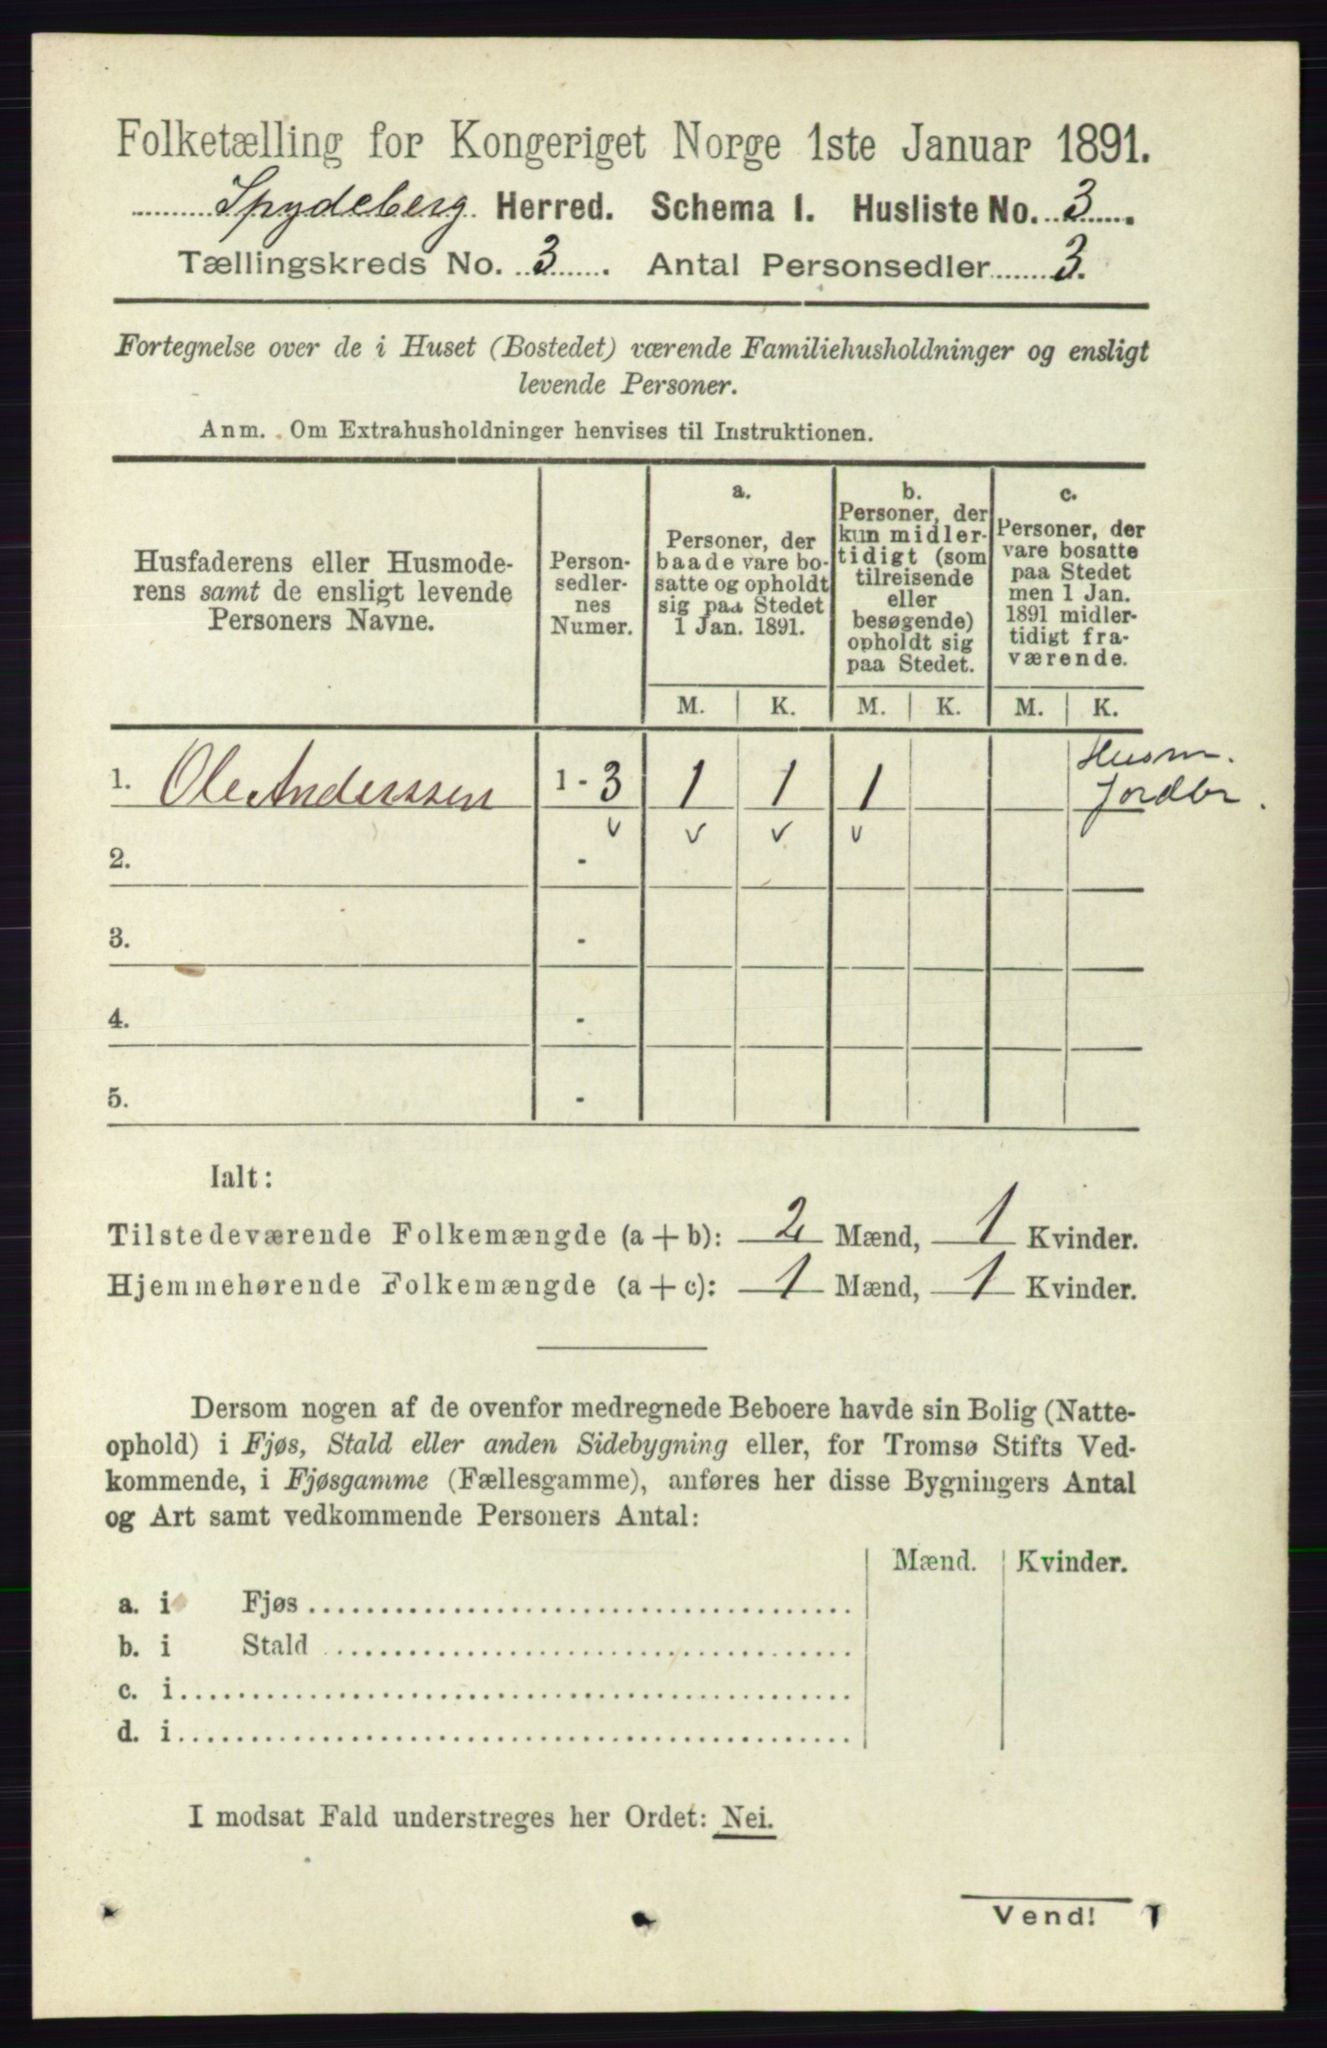 Folketælling for Kongeriget Norge 1ste Januar 1891.
Spydeberg Herred. Schema I. Husliste No. 3.
Tællingskreds No. 3. Antal Personsedler 3.
Fortegnelse over de i Huset (Bostedet) værende Familiehusholdninger og ensligt
levende Personer.
Anm. Om Extrahusholdninger henvises til Instruktionen.
Husfaderens eller Husmode-
rens samt de ensligt levende
Personers Navne.
Person-
sedler-
nes
Numer.
a.
Personer, der
baade vare bo-
satte og opholdt
sig paa Stedet
1 Jan. 1891.
b.
Personer, der
kun midler-
tidigt (som
tilreisende
eller
besøgende)
opholdt sig
paa Stedet.
c.
Personer, der
vare bosatte
paa Stedet
men 1 Jan.
1891 midler-
tidigt fra-
værende.
M. K. M. K. M. K.
Husm.
1. Ole Anderssen 1 - 3 1 1 1 Jordbr.
v v v v
2. -
3. -
4. -
5. -
Ialt:
Tilstedeværende Folkemængde (a + b): 2 Mænd, 1 Kvinder.
Hjemmehørende Folkemængde (a + c): 1 Mænd, 1 Kvinder.
Dersom nogen af de ovenfor medregnede Beboere havde sin Bolig (Natte-
ophold) i Fjøs, Stald eller anden Sidebygning eller, for Tromsø Stifts Ved-
kommende, i Fjøsgamme (Fællesgamme), anføres her disse Bygningers Antal
og Art samt vedkommende Personers Antal:
Mænd. Kvinder.
a. i Fjøs
b. i Stald
c. i
d. i
I modsat Fald understreges her Ordet: Nei.
Vend!